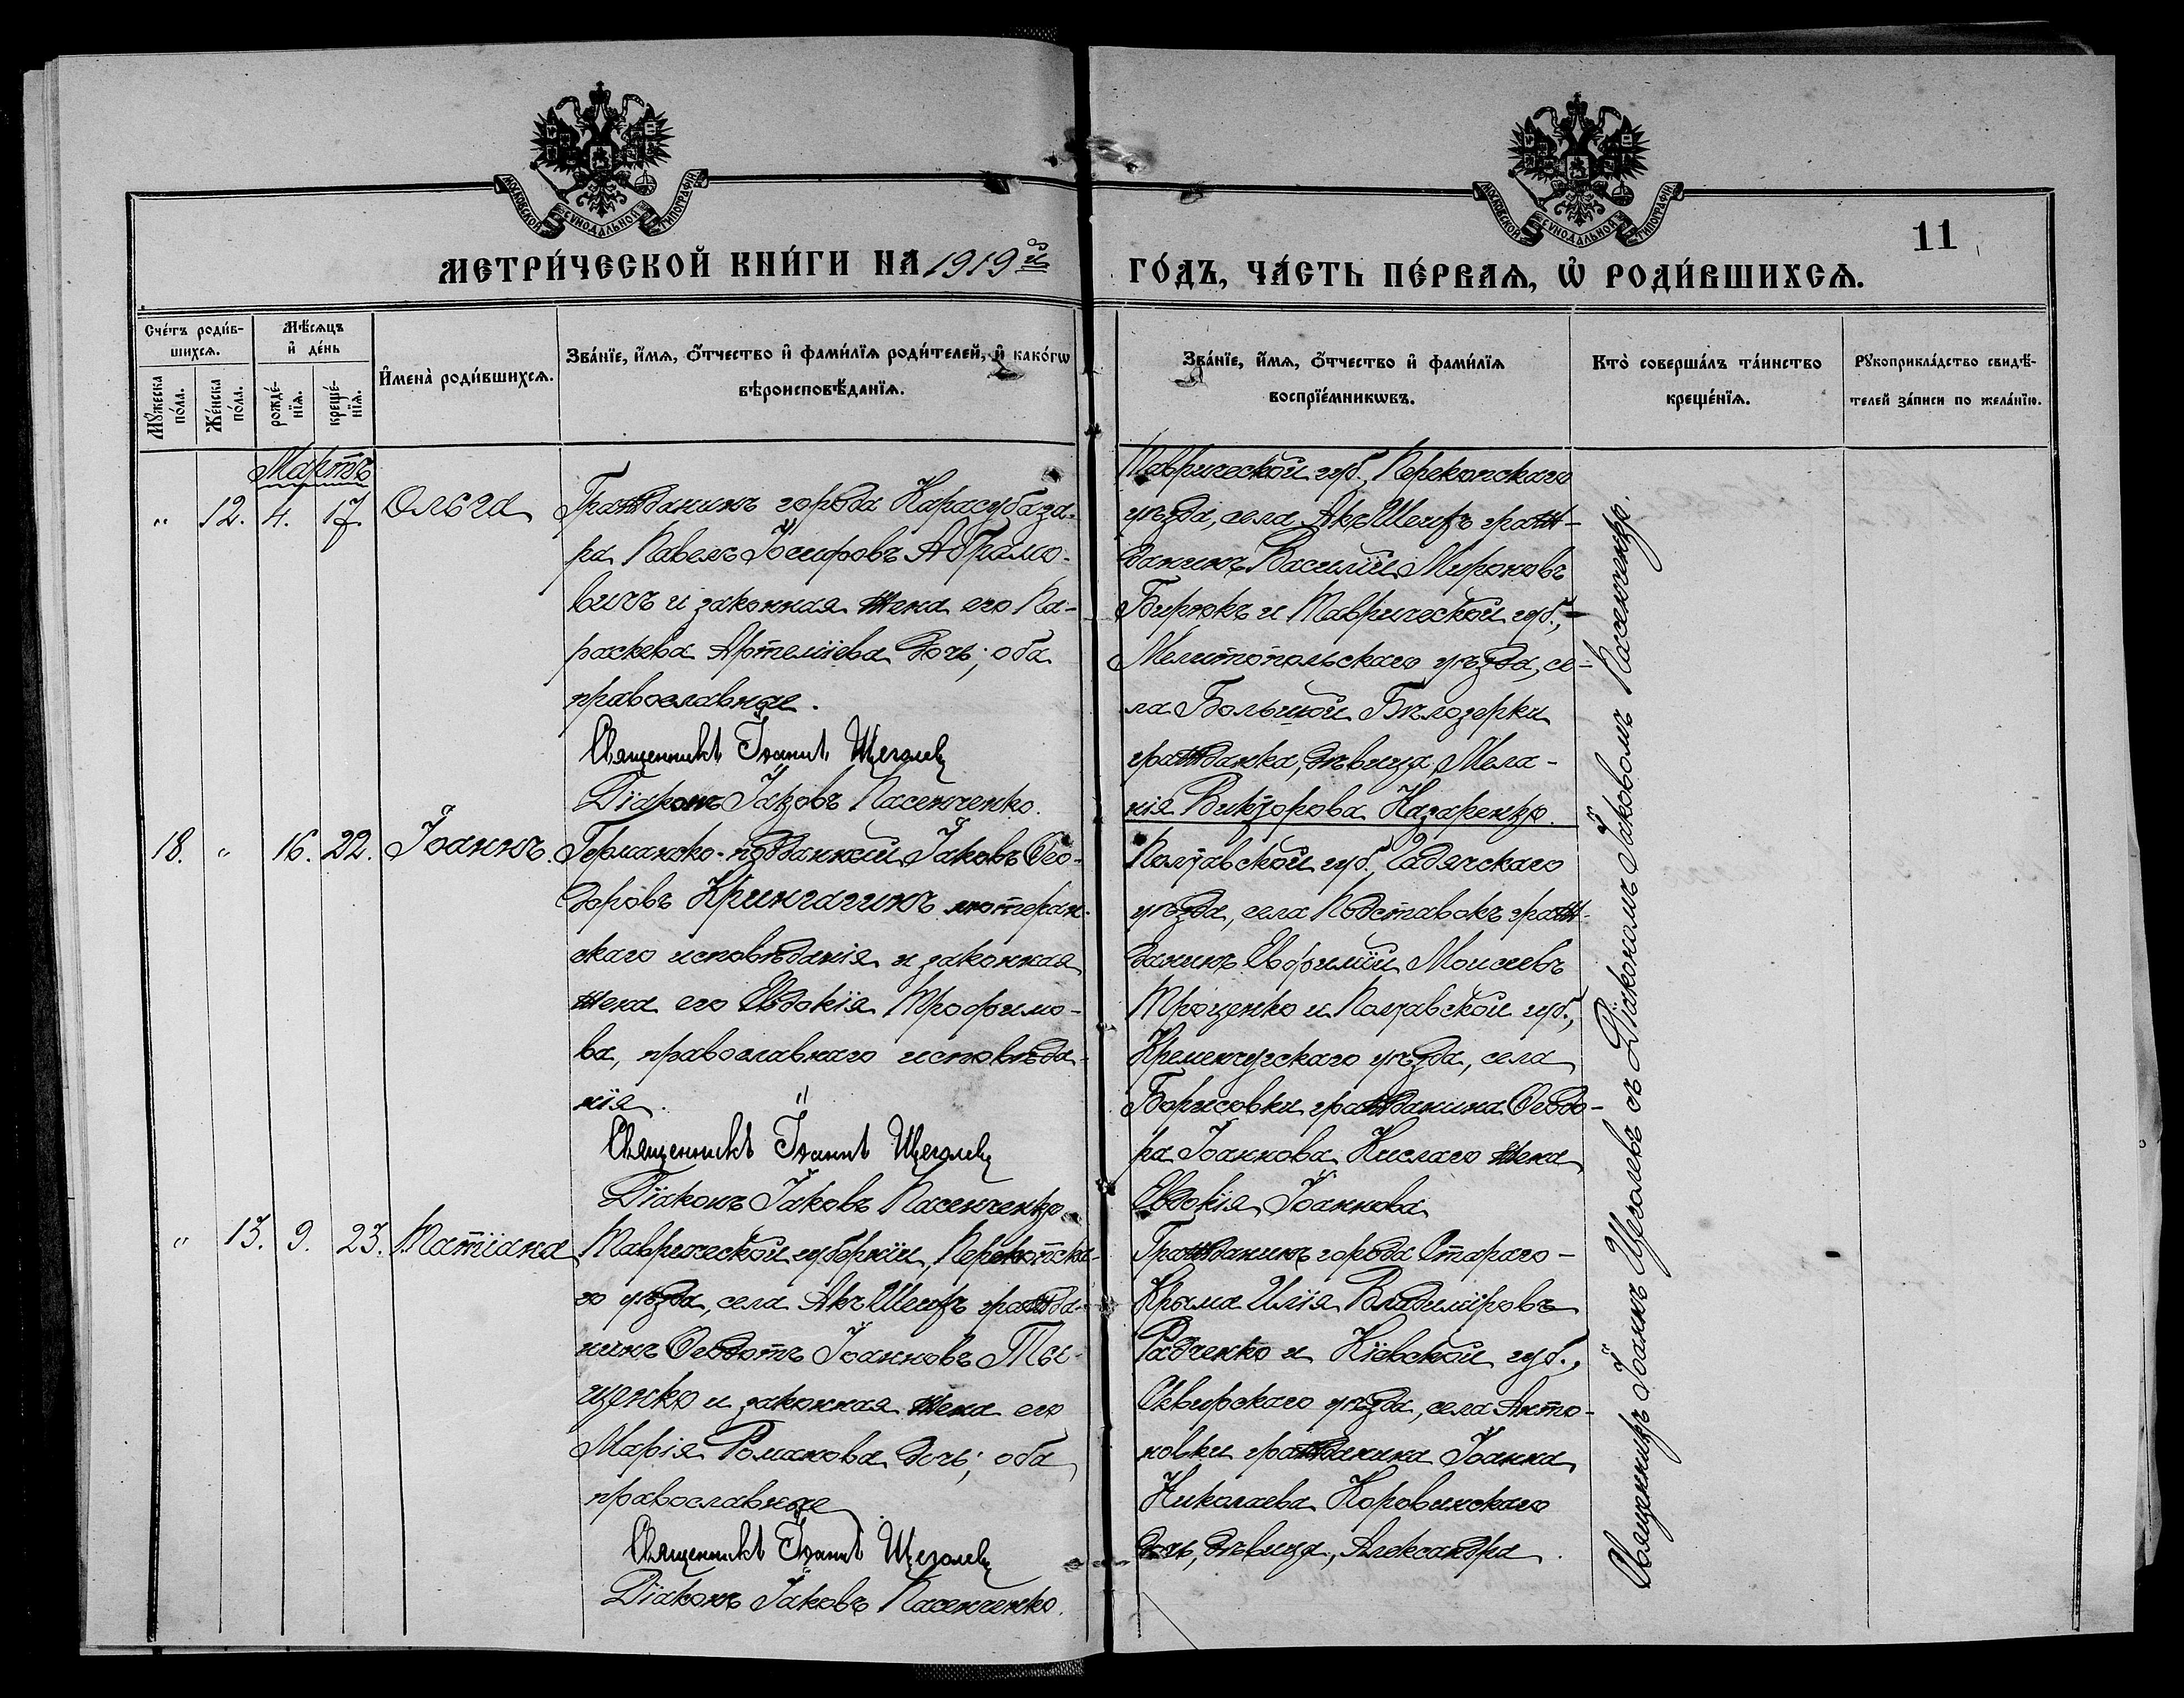 МОСКОВСКОЙ СѴНОДАЛЬНОЙ ТИПОГРАФІИ
МОСКОВСКОЙ СѴНОДАЛЬНОЙ ТИПОГРАФІИ
11
МЕТРИ́ЧЕСКОЙ КНИ́ГИ НА 1919й
ГО́ДЪ, ЧА́СТЬ ПЕ́РВАѦ, Ѡ҆ РОДИ́ВШИХСѦ.
Сче́тъ роди́в-
шихсѧ.
Мѣ́сѧцъ
и҆ де́нь
Мꙋ́жеска по́ла.
Же́нска по́ла.
рожде́-нїѧ.
креще́-нїѧ.
И҆мена̀ роди́вшихсѧ.
Зва́нїе, и҆́мѧ, ѻ҆́тчество и҆ фами́лїѧ роди́телей, и҆ како́гѡ
вѣроисповѣ́данїѧ.
Зва́нїе, и҆́мѧ, ѻ҆́тчество и҆ фами́лїѧ
воспрїе́мникѡвъ.
Кто̀ соверша́лъ та́инство
креще́нїѧ.
Рꙋкоприкла́дство свидѣ́-
телей за́писи по жела́нїю.
Мартъ
" 12. 4. 17. Ольга
Гражданинъ города Карасубаза-
ра Павелъ Іосифовъ Абрамо-
вичъ и законная жена его Па-
раскева Артеміева дочь; оба
православные.
Священникъ Іоаннъ Щеголевъ
Діаконъ Іаковъ Пасенченко.
Таврической губ., Перекопскаго
уѣзда, села Акъ-Шеихъ граж-
данинъ Василій Мироновъ
Бирюкъ и Таврической губ.,
Мелитопольскаго уѣзда, се-
ла Большой Бѣлозерки
гражданка, дѣвица Мела-
нія Викторова Назаренко.
18. " 16. 22. Іоаннъ.
Германско-подданный Іаковъ Ѳео-
доровъ Крингачинъ лютеран-
скаго исповѣданія и законная
жена его Евдокія Трофимо-
ва, православнаго исповѣда-
нія.
Священникъ Іоаннъ Щеголевъ
Діаконъ Іаковъ Пасенченко.
Полтавской губ., Гадячскаго
уѣзда, села Подставокъ граж-
данинъ Евфимій Моисеевъ
Троценко и Полтавской губ.,
Кременчугскаго уѣзда, села
Борисовки гражданина Ѳеодо-
ра Іоаннова Кислаго жена
Евдокія Іоаннова
" 13. 9. 23. Татіана
Таврической губерніи, Перекопска-
го уѣзда, села Акъ-Шеихъ гражда-
нинъ Ѳеодотъ Іоанновъ Ты-
щенко и законная жена его
Марія Романова дочь; оба
православные
Священникъ Іоаннъ Щеголевъ
Діаконъ Іаковъ Пасенченко.
Гражданинъ города Стараго-
Крыма Илія Владиміровъ
Радченко и Кіевской губ.,
Сквирскаго уѣзда, села Анто-
новки гражданина Іоанна
Николаева Коровинскаго
дочь, дѣвица, Александра.
Священникъ Іоаннъ Щеголевъ съ Діакономъ Іаковомъ Пасенченко.